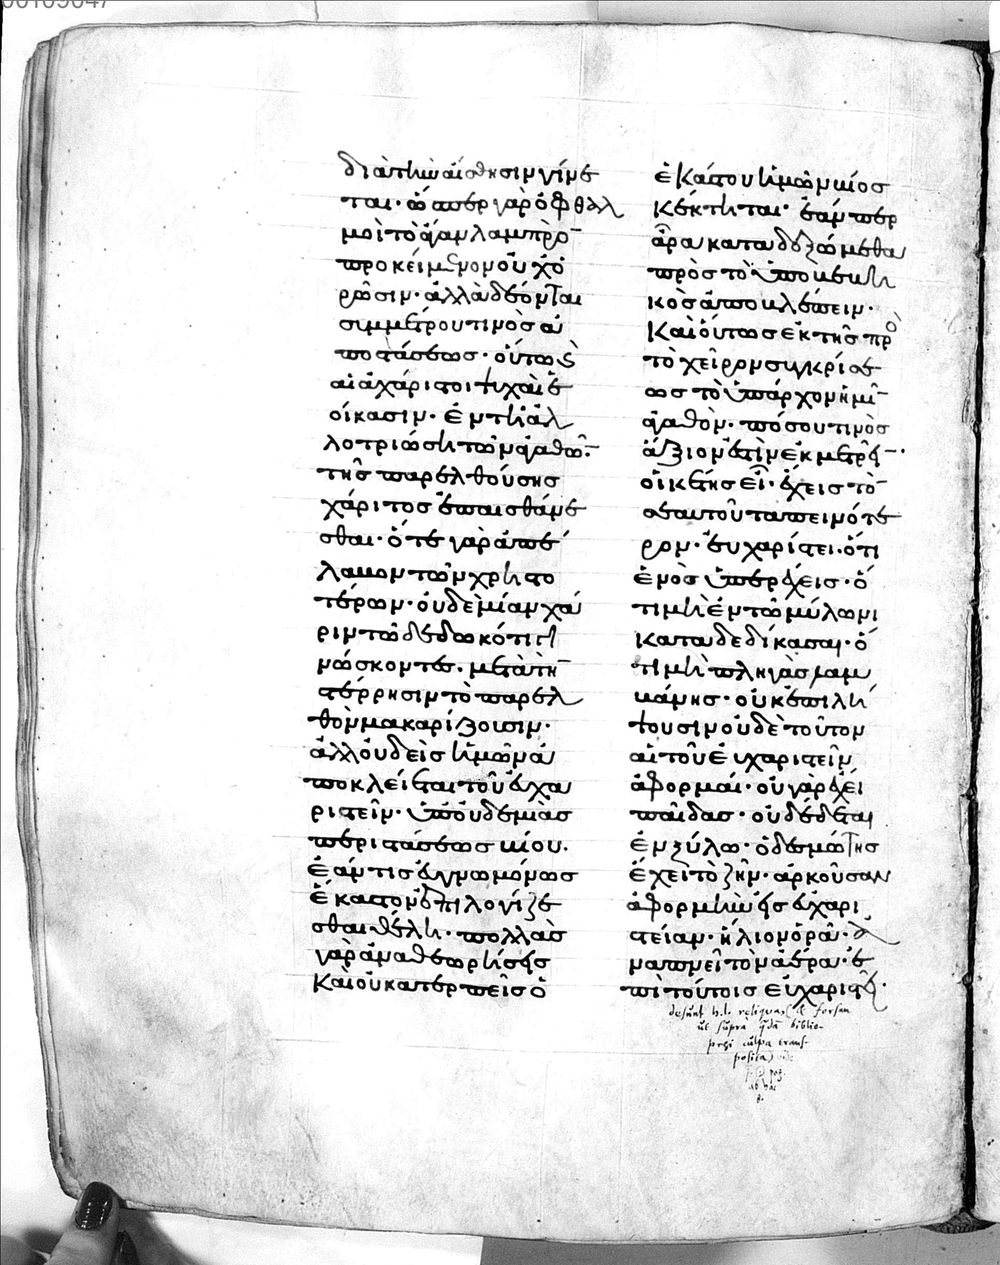 διὰ τὴν αἴσθησιν γίνε
ται· ὥσπερ γὰρ ὀφθαλ
μοὶ τὸ ἄγαν λαμπρὸ
προκείμενον οὐχ ὁ
ρῶσιν· ἀλλὰ δέονται
συμμέτρου τινὸς ἀ
ποστάσεως· οὕτως
αἱ ἀχάριστοι ψυχαὶ ἐ
οίκασιν· ἐν τῆ ἀλ
λοτριώσει τῶν ἀγαθῶ·
τῆς παρελθούσης
χάριτος ἐπαισθάνε
σθαι· ὅτε γὰρ ἀπέ
λαυον τῶν χρηστο
τέρων· οὐδεμίαν χά
ριν τῶ δεδωκότι γι
νώσκοντες· μετὰ τὴ
στέρρησιν τὸ παρελ
θὸν μακαρίζουσιν·
ἀλλ' οὐδεὶς ἡμῶν ἀ
ποκλείεται τοῦ εὐχα
ριστεῖν· ὑπ' οὐδεμιᾶς
περιστάσεως βίου·
ἐάν τις εὐγνωμόνως
ἕκαστον ἐπιλογίζε
σθαι θέλη· πολλὰς
γὰρ ἀναθεωρήσεις
καὶ οὐκ ἀτερπεῖς ὁ
ἑκάστου ἡμῶν βίος
κέκτηται· ἐάνπερ
ἄρα καταδοξώμεθα
πρὸς τὸ ὑποβεβη
κὸς ἀποβλέπειν·
καὶ οὕτως ἐκ τῆς πρὸ
τὸ χεῖρον συγκρίσε
ως τὸ ὑπάρχον ἡμῖ
ἀγαθὸν· πόσου τινὸς
ἄξιόν ἐστιν ἐκμετρε·
οἰκέτης εἶ· ἔχεις τὸ
σεαυτοῦ ταπεινότε
ρον· εὐχαρίστει· ὅτι
ἑνὸς ὑπερέχεις· ὅ
τι μὴ ἐν τῶ μύλωνι
καταδεδίκασαι· ὅ
τι μὴ πληγὰς λαμ
βάνης· οὐκ ἐπιλεί
ψουσιν οὐδὲ τοῦτον
αἱ τοῦ εὐχαριστεῖν
ἀφορμαί· οὐ γὰρ ἔχει
παῖδας· οὐ δέδεται
ἐν ξύλω· ὁ δεσμώτης
ἔχει τὸ ζῆν· ἀρκοῦσαν
ἀφορμὴν εἰς εὐχαρι
στείαν· ἥλιον ὁρᾶ· ἀ
ναπνεῖ τὸν ἀέρα· ἐ
πὶ τούτοις εὐχαριστεῖ·
desunt h.l. reliqua, et forsan
ut supra quadam biblio-
pegi culpa trans-
posita